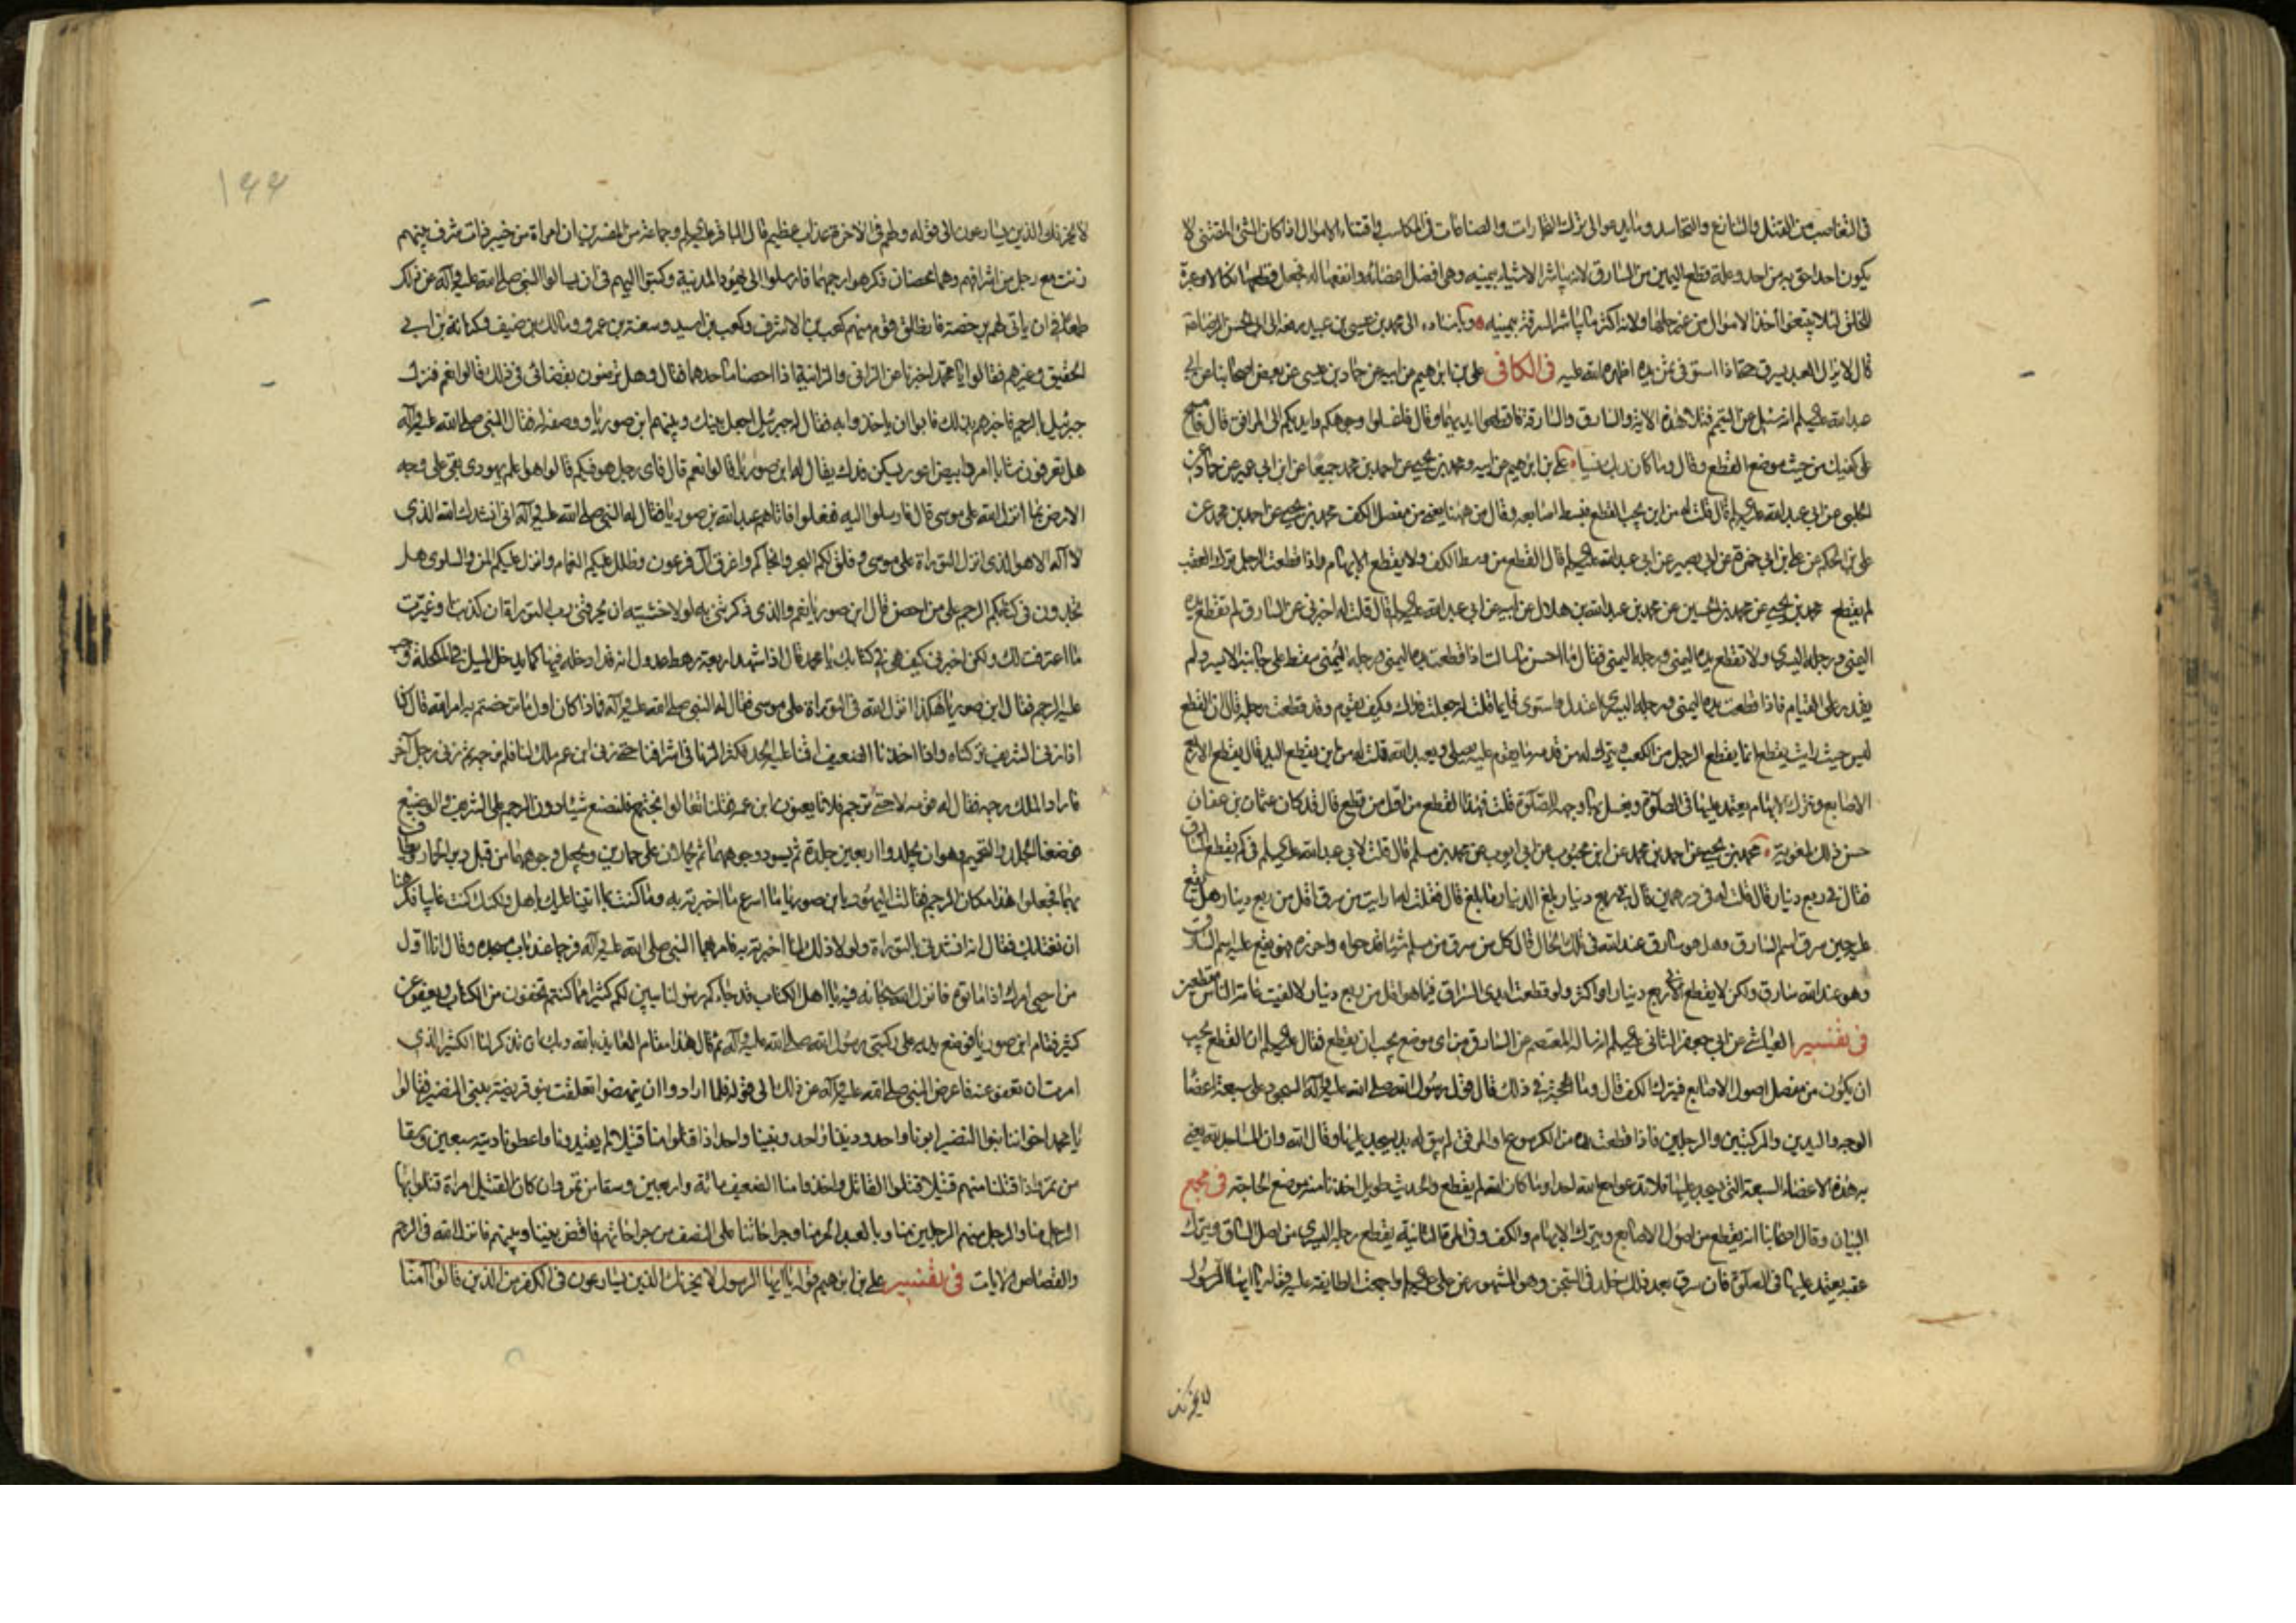 فى التغاصب من القتل والتنازع والتحاسد وما يدعو الى ترك التجارات والصناعات فى المكاسب واقتناء الاموال اذا كان الشئ المقتنى لا
يكون احد احق به من احد وعلة قطع اليمين من السارق لانه يباشر الاشياء بيمينه وهى افضل اعضائه وانفعها له فجعل قطعها نكالا وعبرة
للخلق لئلا يبتغوا اخذ الاموال من غير حلها ولانه اكثر ما يباشر السرقة بيمينه وباسناده الى محمد بن عيسى بن عبيد رفعه الى ابى الحسن الرضا
قال لا يزال العبد يسرق حتى اذا استوفى ثمن يده اظهره الله عليه فى الكافى على بن ابرهيم عن ابيه عن حماد بن عيسى عن بعض اصحابنا عن ابى
عبد الله عليه السلم انه سئل عن التيمم فتلا هذه الاية والسارق والسارقة فاقطعوا ايديهما وقال فاغسلوا وجوهكم وايديكم الى المرافق قال فامسح
على كفيك من حيث موضع القطع وقال وما كان ربك نسيا على بن ابرهيم عن ابيه ومحمد بن يحيى عن احمد بن محمد جميعا عن ابن ابى عمير عن حماد عن
الحلبى عن ابى عبد الله عليه السلم قال قلت له من اين يجب القطع فبسط اصابعه وقال من ههنا يعنى من مفصل الكف محمد بن يحيى عن احمد بن محمد عن
على بن الحكم عن على بن ابى حمزة عن ابى بصير عن ابى عبد الله عليه السلم قال القطع من وسط الكف ولا يقطع الابهام واذا قطعت الرجل ترك العقب
لم يقطع محمد بن يحيى عن محمد بن الحسين عن محمد بن عبد الله بن هلال عن ابيه عن ابى عبد الله عليه السلم قال قلت له اخبرنى عن السارق لم تقطع يده
اليمنى ورجله اليسرى ولا تقطع يده اليمنى ورجله اليمنى فقال ما احسن ما سالت اذا قطعت يده اليمنى ورجله اليمنى سقط على جانبه الايسر ولم
يقدر على القيام فاذا قطعت يده اليمنى ورجله اليسرى اعتدل واستوى قايما قلت له جعلت فداك وكيف يقوم وقد قطعت رجله قال ان القطع
ليس حيث رايت يقطع انما يقطع الرجل من الكعب ويترك له من قدمه ما يقوم عليه يصلى ويعبد الله قلت له من اين يقطع اليد قال يقطع الاربع
الاصابع ويترك الابهام يعتمد عليها فى الصلوة ويغسل بها وجهه للصلوة قلت فهذا القطع من اول من قطع قال قد كان عثمان بن عفان
حسن ذلك لمعوية محمد بن يحيى عن احمد بن محمد عن ابن محبوب عن ابى ايوب عن محمد بن مسلم قال قلت لابى عبد الله عليه السلم فى كم يقطع السارق
فقال فى ربع دينار قال قلت له فى درهمين قال فى ربع دينار بلغ الدينار ما بلغ قال فقلت له ارايت من سرق اقل من ربع دينار هل يقع
عليه حين سرق اسم السارق وهل هو سارق عند الله فى تلك الحال قال كل من سرق من مسلم شيئا قد حواه واحرزه فهو يقع عليه اسم السارق
وهو عند الله سارق ولكن لا يقطع الا فى ربع دينار او اكثر ولو قطعت ايدى السراق فيما هو اقل من ربع دينار لالفيت عامة الناس مقطعين
فى تفسير العياشى عن ابى جعفر الثانى عليه السلم انه ساله المعتصم عن السارق من اى موضع يجب ان يقطع فقال عليه السلم ان القطع يجب
ان يكون من مفصل اصول الاصابع فيترك الكف قال وما الحجة فى ذلك قال قول رسول الله صلى الله عليه وآله السجود على سبعة اعضا
الوجه واليدين والركبتين والرجلين فاذا قطعت يده من الكرسوع او المرفق لم يبق له يد يسجد عليها وقال الله وان المساجد لله يعنى
به هذه الاعضاء السبعة التى يسجد عليها فلا تدعوا مع الله احدا وما كان لله لم يقطع والحديث طويل اخذنا منه موضع الحاجة فى مجمع
البيان وقال اصحابنا انه يقطع من اصول الاصابع ويترك الابهام والكف وفى المرة الثانية يقطع رجله اليسرى من اصل الساق ويترك
عقبه يعتمد عليها فى الصلوة فان سرق بعد ذلك خلد فى السجن وهو المشهور عن على عليه السلم واجمعت الطايفة عليه قوله يا ايها الرسول
لا يحزنك
١٩٩
لا يحزنك الذين يسارعون الى قوله ولهم فى الاخرة عذاب عظيم قال الباقر عليه السلم وجماعة من المفسرين ان امراة من خيبر ذات شرف بينهم
زنت مع رجل من اشرافهم وهما محصنان فكرهوا رجمهما فارسلوا الى يهود المدينة وكتبوا اليهم فى ان يسالوا النبى صلى الله عليه وآله عن ذلك
طمعا فى ان ياتى لهم برخصة فانطلق قوم منهم كعب بن الاشرف وكعب بن اسيد وسعفة بن عمرو ومالك بن ضيف وكنانة بن ابى
الحقيق وغيرهم فقالوا يا محمد اخبرنا عن الزانى والزانية اذا احصنا ما حدهما فقال وهل ترضون بقضائى فى ذلك قالوا نعم فنزل
جبرئيل بالرجم فاخبرهم بذلك فابوا ان ياخذوا به فقال له جبرئيل اجعل بينك وبينهم ابن صوريا ووصفه له فقال النبى صلى الله عليه وآله
هل تعرفون شابا امرد ابيض اعور يسكن فدك يقال له ابن صوريا قالوا نعم قال فاى رجل هو فيكم قالوا هو اعلم يهودى بقى على وجه
الارض بما انزل الله على موسى قال فارسلوا اليه ففعلوا فاتاهم عبد الله بن صوريا فقال له النبى صلى الله عليه وآله انى انشدك الله الذى
لا اله الا هو الذى انزل التوراة على موسى وفلق لكم البحر وانجاكم واغرق آل فرعون وظلل عليكم الغمام وانزل عليكم المن والسلوى هل
تجدون فى كتابكم الرجم على من احصن قال ابن صوريا نعم والذى ذكرتنى به لولا خشية ان يحرقنى رب التوراة ان كذبت او غيرت
ما اعترفت لك ولكن اخبرنى كيف هى فى كتابك يا محمد قال اذا شهد اربعة رهط عدول انه قد ادخله فيها كما يدخل الميل فى المكحلة وجب
عليه الرجم فقال ابن صوريا هكذا انزل الله فى التوراة على موسى فقال له النبى صلى الله عليه وآله فاذا كان اول ما ترخصتم به امر الله قال كنا
اذا زنى الشريف تركناه واذا اخذنا الضعيف اقمنا عليه الحد فكثر الزنا فى اشرافنا حتى زنى ابن عم ملك لنا فلم نرجمه ثم زنى رجل آخر
فاراد الملك رجمه فقال له قومه لا حتى ترجم فلانا يعنون ابن عمه فقلنا تعالوا نجتمع فلنضع شيئا دون الرجم على الشريف والوضيع
فوضعنا الجلد والتحميم وهو ان يجلدوا اربعين جلدة ثم يسود وجوههما ثم يحملان على حمارين ويجعل وجوههما من قبل دبر الحمار ويطاف
بهما فجعلوا هذا مكان الرجم فقالت اليهود يا ابن صوريا ما اسرع ما اخبرته به وما كنت لما اتينا عليك باهل ولكنك كنت غايبا فكرهنا
ان نغتابك فقال انه انشدنى بالتوراة ولولا ذلك لما اخبرته به فامر بهما النبى صلى الله عليه وآله فرجما عند باب مسجده وقال انا اول
من احيى امرك اذ اماتوه فانزل الله سبحانه فيه يا اهل الكتاب قد جاءكم رسولنا يبين لكم كثيرا مما كنتم تخفون من الكتاب ويعفو عن
كثير فقام ابن صوريا فوضع يديه على ركبتى رسول الله صلى الله عليه وآله ثم قال هذا مقام العايذ بالله وبك ان تذكر لنا الكثير الذى
امرت ان تعفو عنه فاعرض النبى صلى الله عليه وآله عن ذلك الى قوله فلما ارادوا ان ينهضوا تعلقت بنو قريضة ببنى النضير فقالوا
يا محمد اخواننا بنوا النضير ابونا واحد وديننا واحد ونبينا واحد اذا قتلوا منا قتيلا لم يفيدونا واعطونا ديته سبعين وسقا
من تمر واذا قتلنا منهم قتيلا قتلوا القاتل واخذوا منا الضعف مائة واربعين وسقا من تمر وان كان القتيل امراة قتلوا بها
الرجل منا والرجل منهم الرجلين منا وبالعبد الحر منا وجراحاتنا على النصف من جراحاتهم فاقض بيننا وبينهم فانزل الله فى الرجم
والقصاص الايات فى تفسير على بن ابرهيم قوله يا ايها الرسول لا يحزنك الذين يسارعون فى الكفر من الذين قالوا آمنا